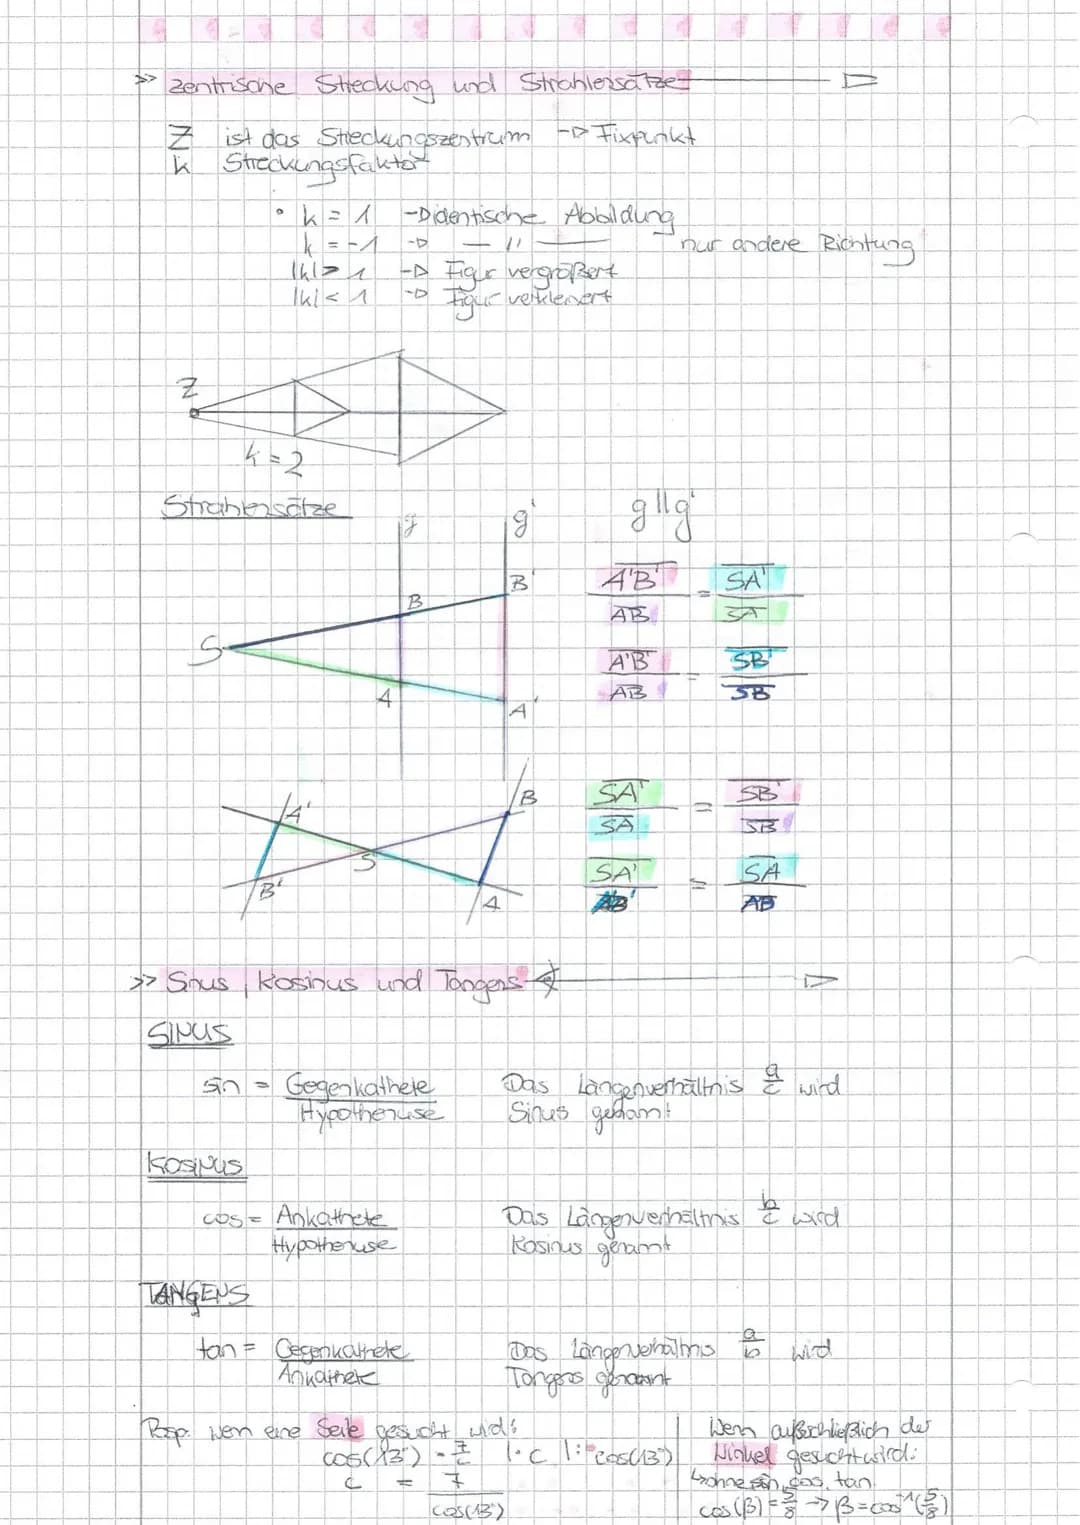 >> zentrische Streckung und Strahlensätze
Z ist das Streckungszentrum -> Fixpunkt
k Streckungsfaktor
• k = 1 -> identische Abbildung
k = -1 -> — " — nur andere Richtung
|k| > 1 -> Figur vergrößert
|k| < 1 -> Figur verkleinert
Z
k = 2
Strahlensätze
g g' g || g'
B B' A'B' / AB = SA' / SA
S
A A' A'B' / AB = SB' / SB
A' B SA' / SA = SB' / SB
S
B' A SA' / = SA / AB
>> Sinus | Kosinus und Tangens
SINUS
sin = Gegenkathete / Hypothenuse
Das Längenverhältnis a/c wird
Sinus genannt
KOSINUS
cos = Ankathete / Hypothenuse
Das Längenverhältnis b/c wird
Kosinus genannt
TANGENS
tan = Gegenkathete / Ankathete
Das Längenverhältnis a/b wird
Tangens genannt
Bsp. wenn eine Seite gesucht wird:
cos(13°) = 7/c |·c |: cos(13°)
c = 7 / cos(13°)
Wenn außschließlich der
Winkel gesucht wird:
↳ ohne sin, cos, tan
cos(β) = 5/8 -> β = cos⁻¹(5/8)